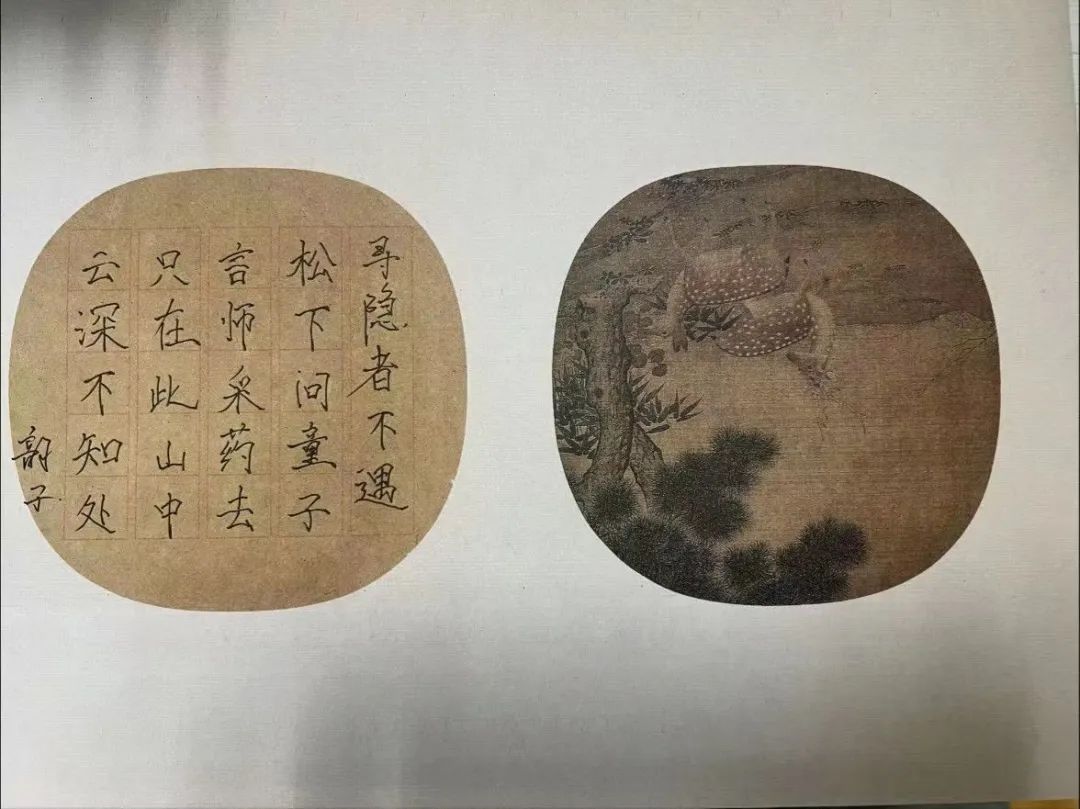 寻隐者不遇
松下问童子
言师采药去
只在此山中
云深不知处
子